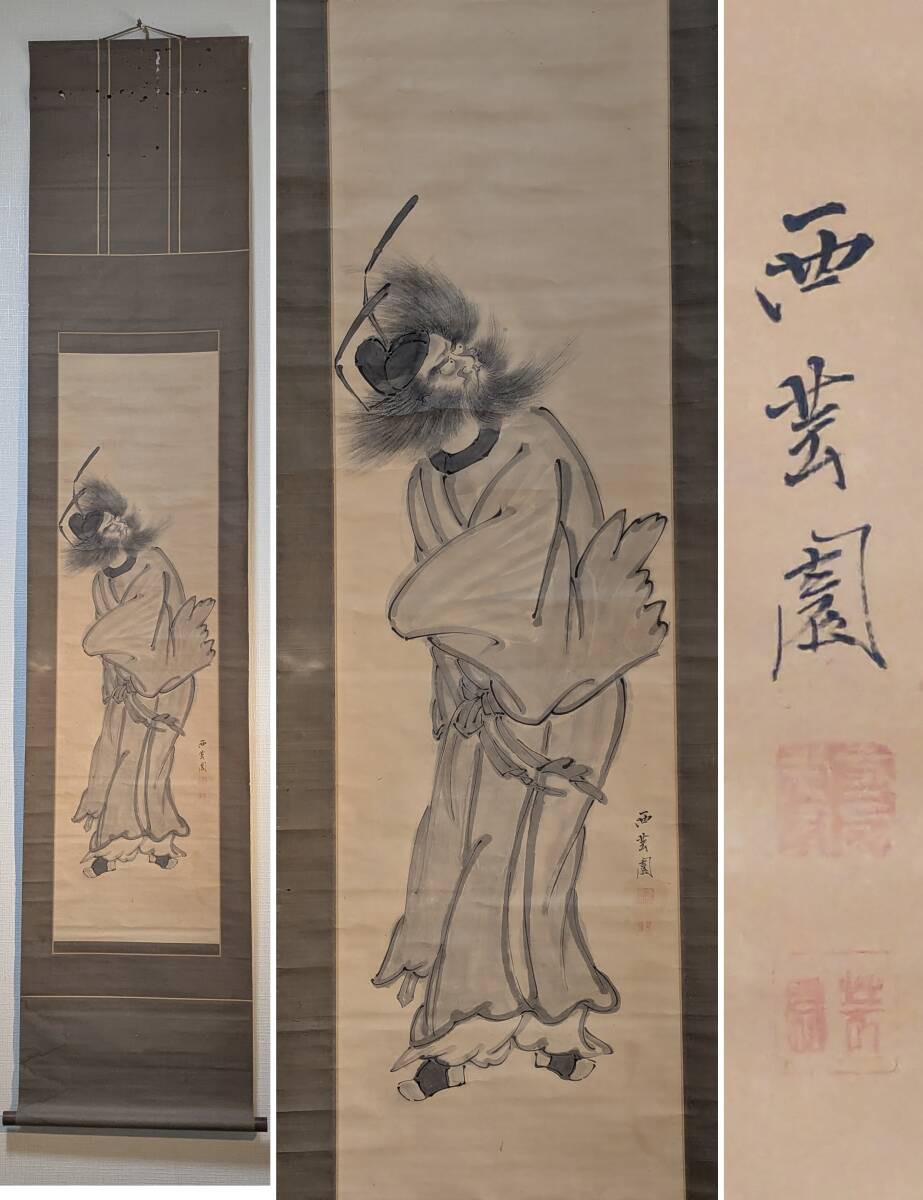 西芸園
西芸園
西芸園